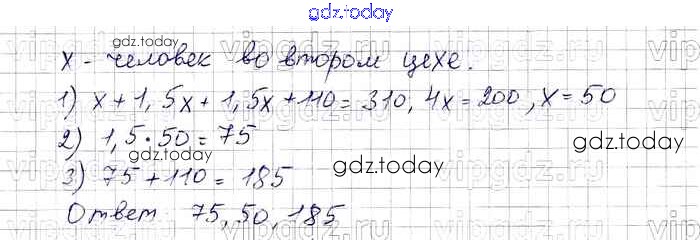 gdz.today
x - человек во втором цехе.
gdz.today
1) x + 1,5x + 1,5x + 110 = 310, 4x = 200, x = 50
2) 1,5 · 50 = 75
gdz.today
gdz.today
3) 75 + 110 = 185
Ответ 75, 50, 185